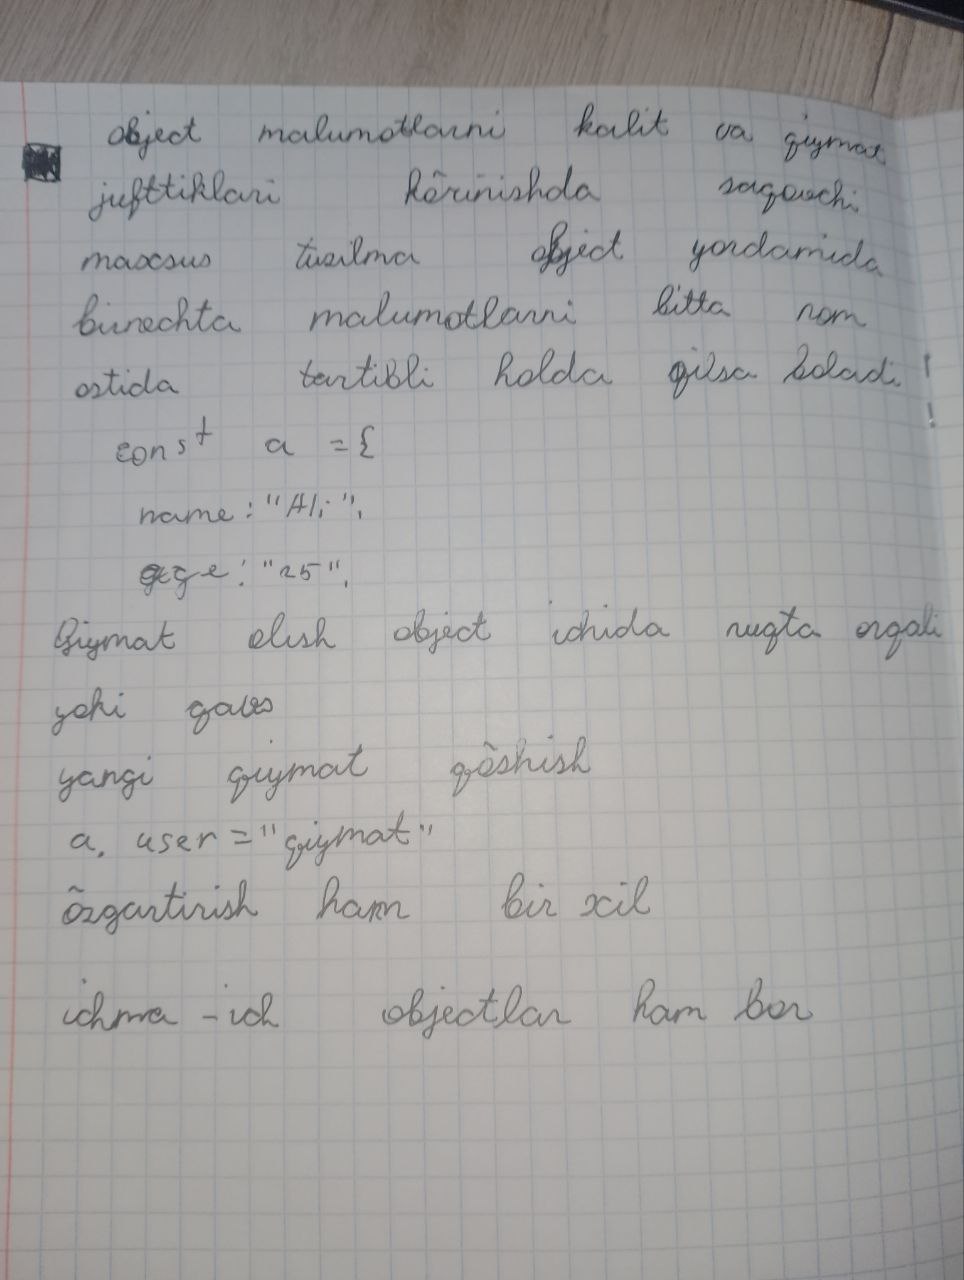 object malumotlarni kalit va qiymat
jufttiklari kôrinishda saqovchi
maxsus tuzilma object yordamida
birnechta malumotlarni bitta nom
ostida tartibli holda qilsa boladi !
!
const a = {
name: "Ali",
age: "25",
Qiymat olish object ichida nuqta orqali
yoki qavs
yangi qiymat qôshish
a. user = "qiymat"
õzgartirish ham bir xil
ichma - ich objectlar ham bor